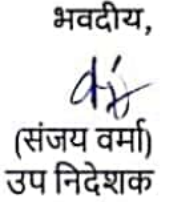 भवदीय,
(संजय वर्मा)
उप निदेशक